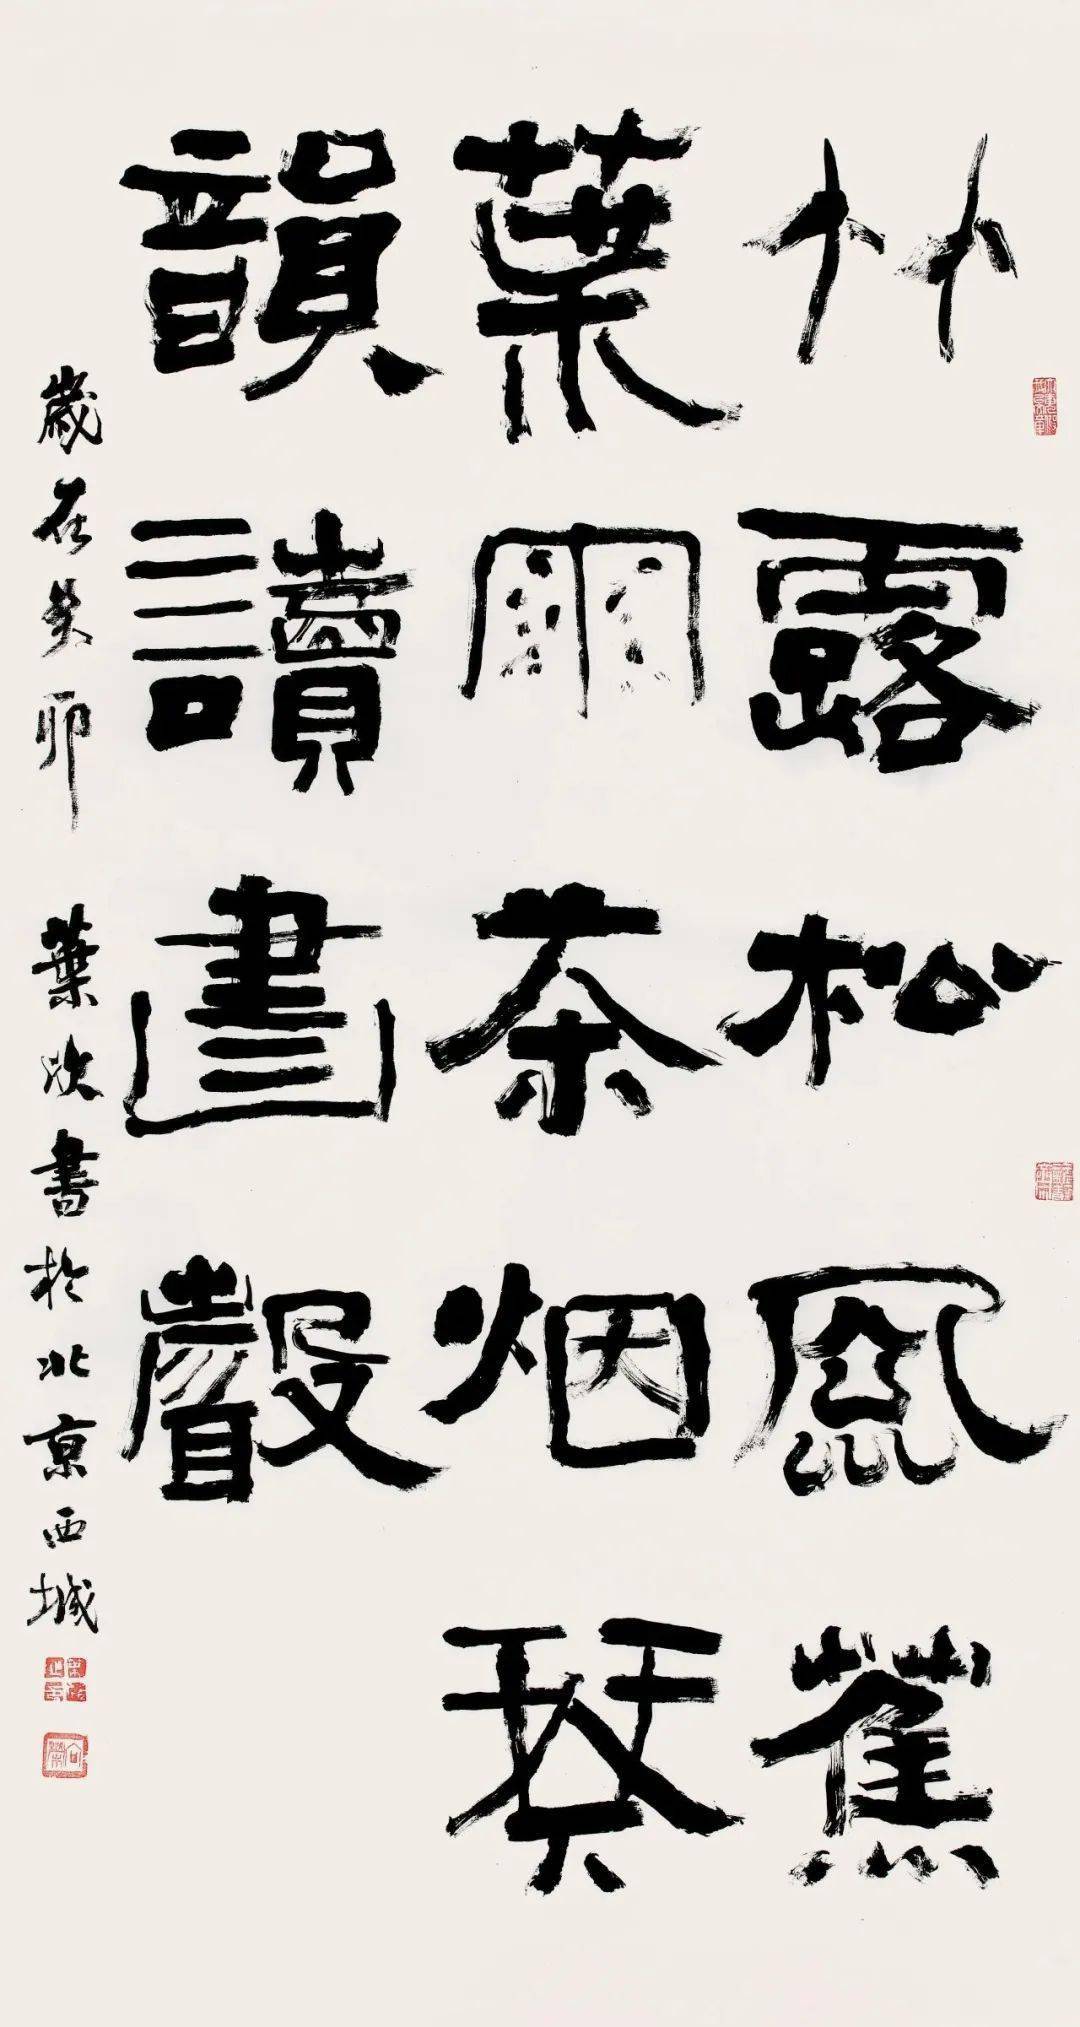 竹露松風蕉
葉雨茶烟琹
韻讀書聲
歲在癸卯 葉欣書於北京西城